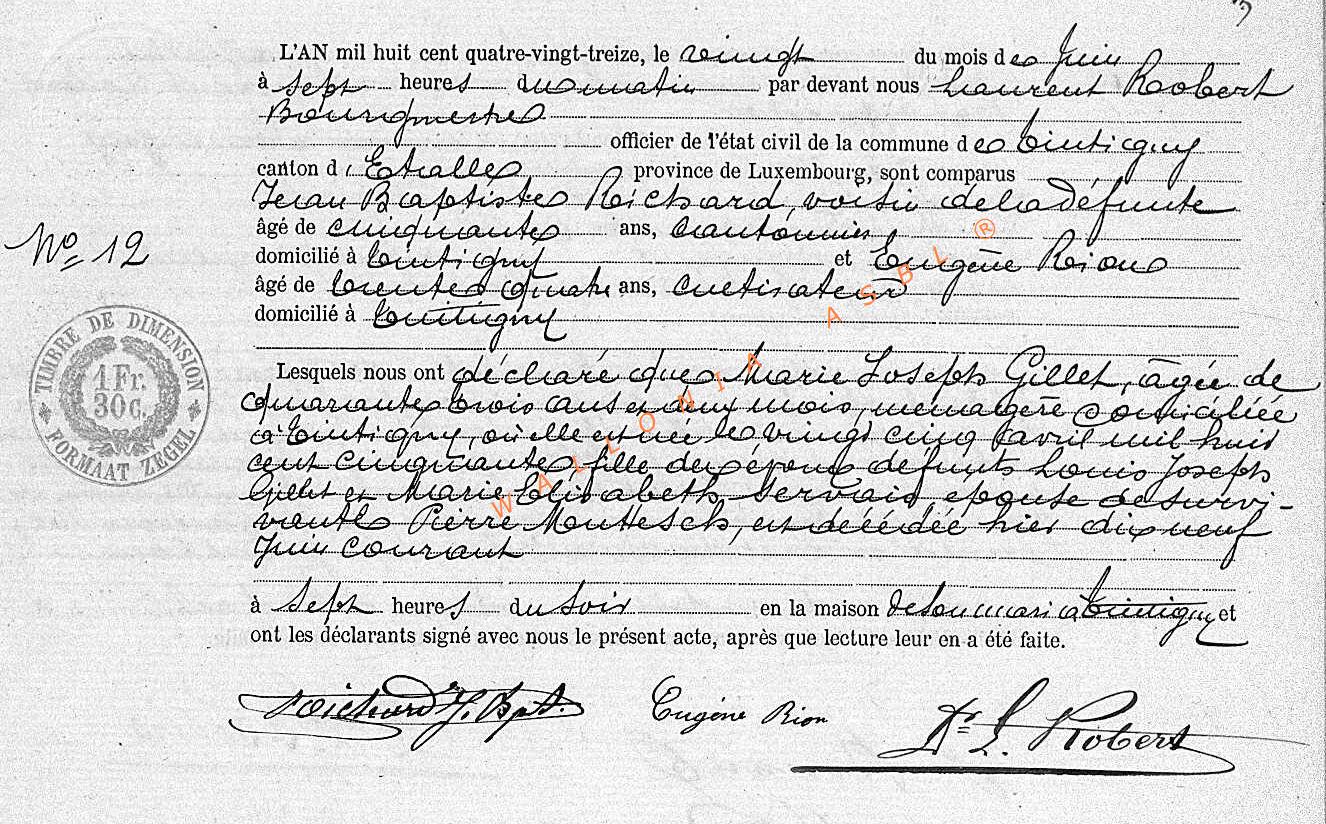 L'AN mil huit cent quatre-vingt-treize, le vingt du mois de Juin
à sept heures du matin par devant nous Laurent Robert
Bourgmestre
officier de l'état civil de la commune de Tintigny
canton d'Etalle province de Luxembourg, sont comparus
Jean Baptiste Richard, voisin de la défunte
âgé de cinquante ans, cantonnier
No 12
domicilié à Tintigny et Eugène Rion
âgé de trente quatre ans, cultivateur
domicilié à Tintigny
Lesquels nous ont déclaré que Marie Joseph Gillet, agée de
quarante trois ans et deux mois, ménagère domiciliée
à Tintigny, où elle est née le vingt cinq avril mil huit
cent cinquante, fille des époux défunts Louis Joseph
Gillet et Marie Elisabeth Servais, épouse de survi-
vant Pierre, est décédée hier dix neuf
Juin courant
à sept heures du soir en la maison de son mari à Tintigny et
ont les déclarants signé avec nous le présent acte, après que lecture leur en a été faite.
Richard J. Bpt. Eugène Rion Dr L. Robert
TIMBRE DE DIMENSION
1 Fr.
30 C.
FORMAAT ZEGEL
WALLONIA ASBL ®